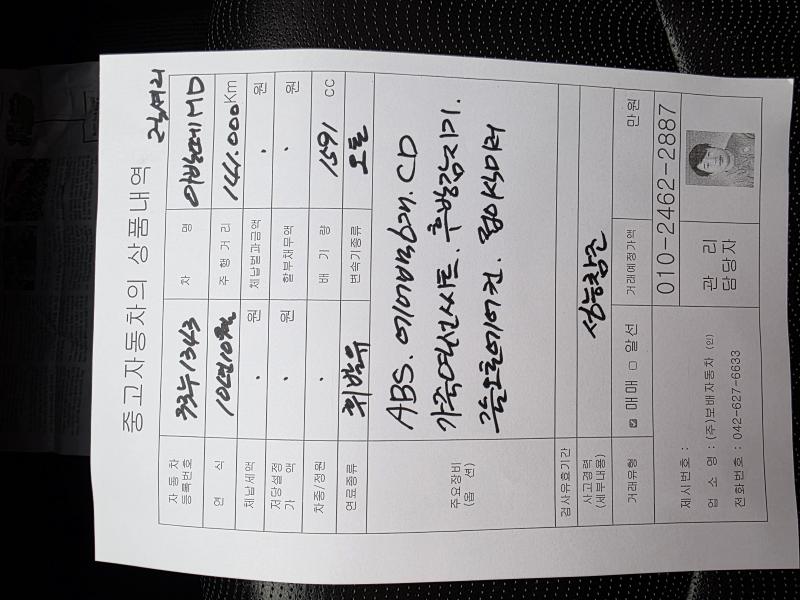 중고자동차의 상품내역
자동차 등록번호 33누1343 차 명 아반떼MD
연 식 10년10월 주 행 거 리 141.000Km
체납세액 . 원 체납벌과금액 . 원
저당설정가액 . 원 할부채무액 . 원
차종/정원 . 배 기 량 1591 CC
연료종류 휘발유 변속기종류 오토
주요장비 (옵 션)
ABS. 에어백6개. CD
가죽열선시트. 후방감지기.
풀오토에어컨. 접이식미러
검사유효기간
사고경력 (세부내용) 성능참조
거래유형 ☑ 매매 □ 알선 거래예정가액 만원
제시번호 :
업 소 명 : (주)보배자동차 (인)
전화번호 : 042-627-6633
010-2462-2887
관 리
담당자